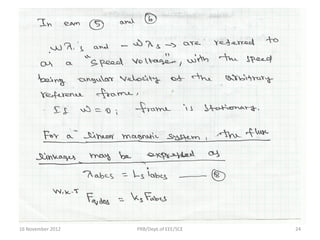 In eqn ⑤ and ⑥
ωλ.s and - ωλs → are referred to
as a "Speed voltages", with the speed
being angular velocity of the arbitrary
reference frame.
If ω=0; frame is stationary.
For a linear magnetic system, the flux
linkages may be expressed as
λabcs = Ls iabcs —— ⑧
W.K.T Fqdos = Ks Fabcs
10 November 2012 PRB/Dept.of EEE/SCE 24